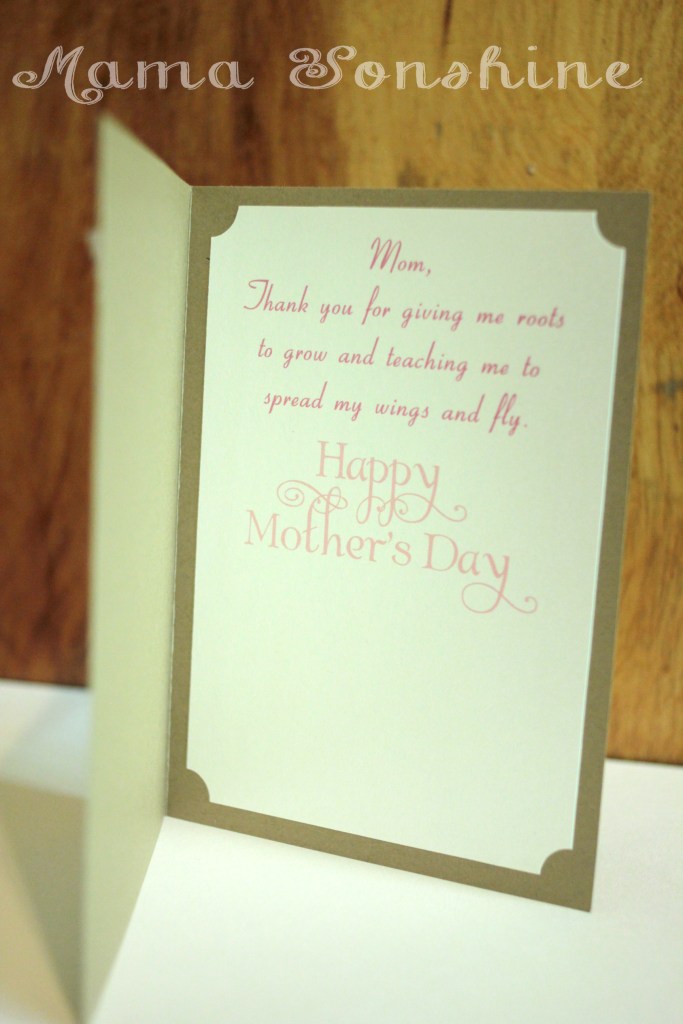 Mama Sonshine
Mom,
Thank you for giving me roots
to grow and teaching me to
spread my wings and fly.
Happy
Mother's Day